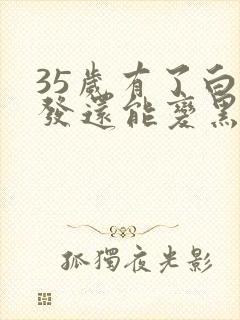 35歲有了白
發還能變黑
孤獨夜光影